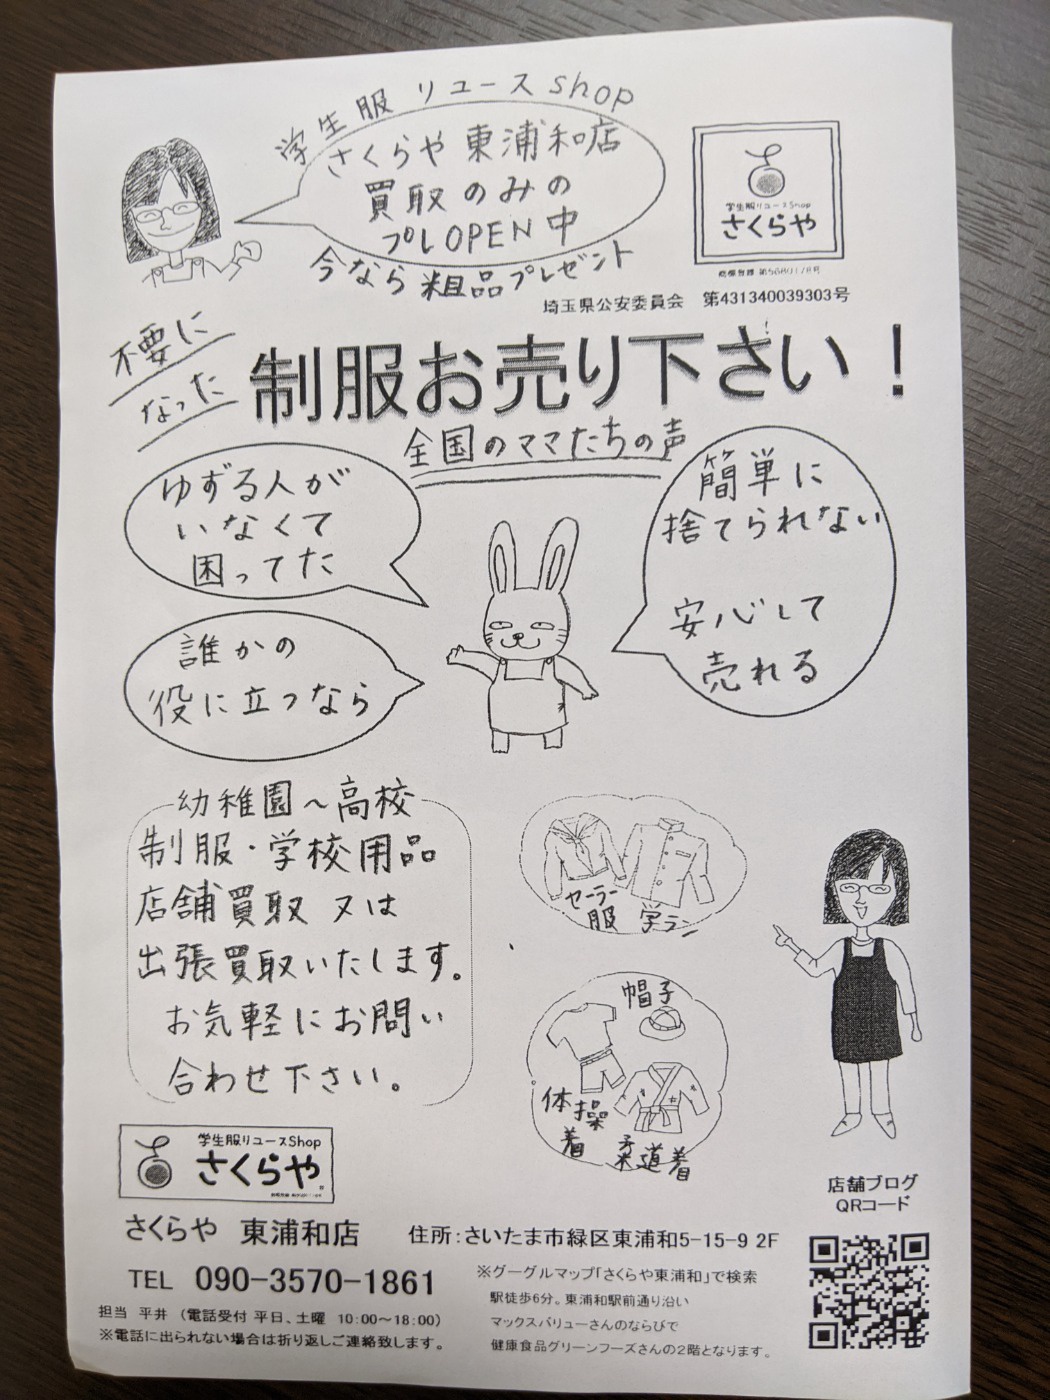 学生服 リユース shop
さくらや 東浦和店
買取のみの
プレOPEN中
今なら 粗品プレゼント
学生服リユースShop
さくらや
埼玉県公安委員会 第431340039303号
不要に
なった
制服お売り下さい!
全国のママたちの声
ゆずる人が
いなくて
困ってた
簡単に
捨てられない
安心して
売れる
誰かの
役に立つなら
幼稚園~高校
制服・学校用品
店舗買取 又は
出張買取いたします。
お気軽にお問い
合わせ下さい。
セーラー
服
学ラン
帽子
体操
着
柔道着
学生服リユースShop
さくらや
店舗ブログ
QRコード
さくらや 東浦和店
住所:さいたま市緑区東浦和5-15-9 2F
TEL 090-3570-1861
担当 平井 (電話受付 平日、土曜 10:00~18:00)
※電話に出られない場合は折り返しご連絡致します。
※グーグルマップ「さくらや東浦和」で検索
駅徒歩6分。東浦和駅前通り沿い
マックスバリューさんのならびで
健康食品グリーンフーズさんの2階となります。